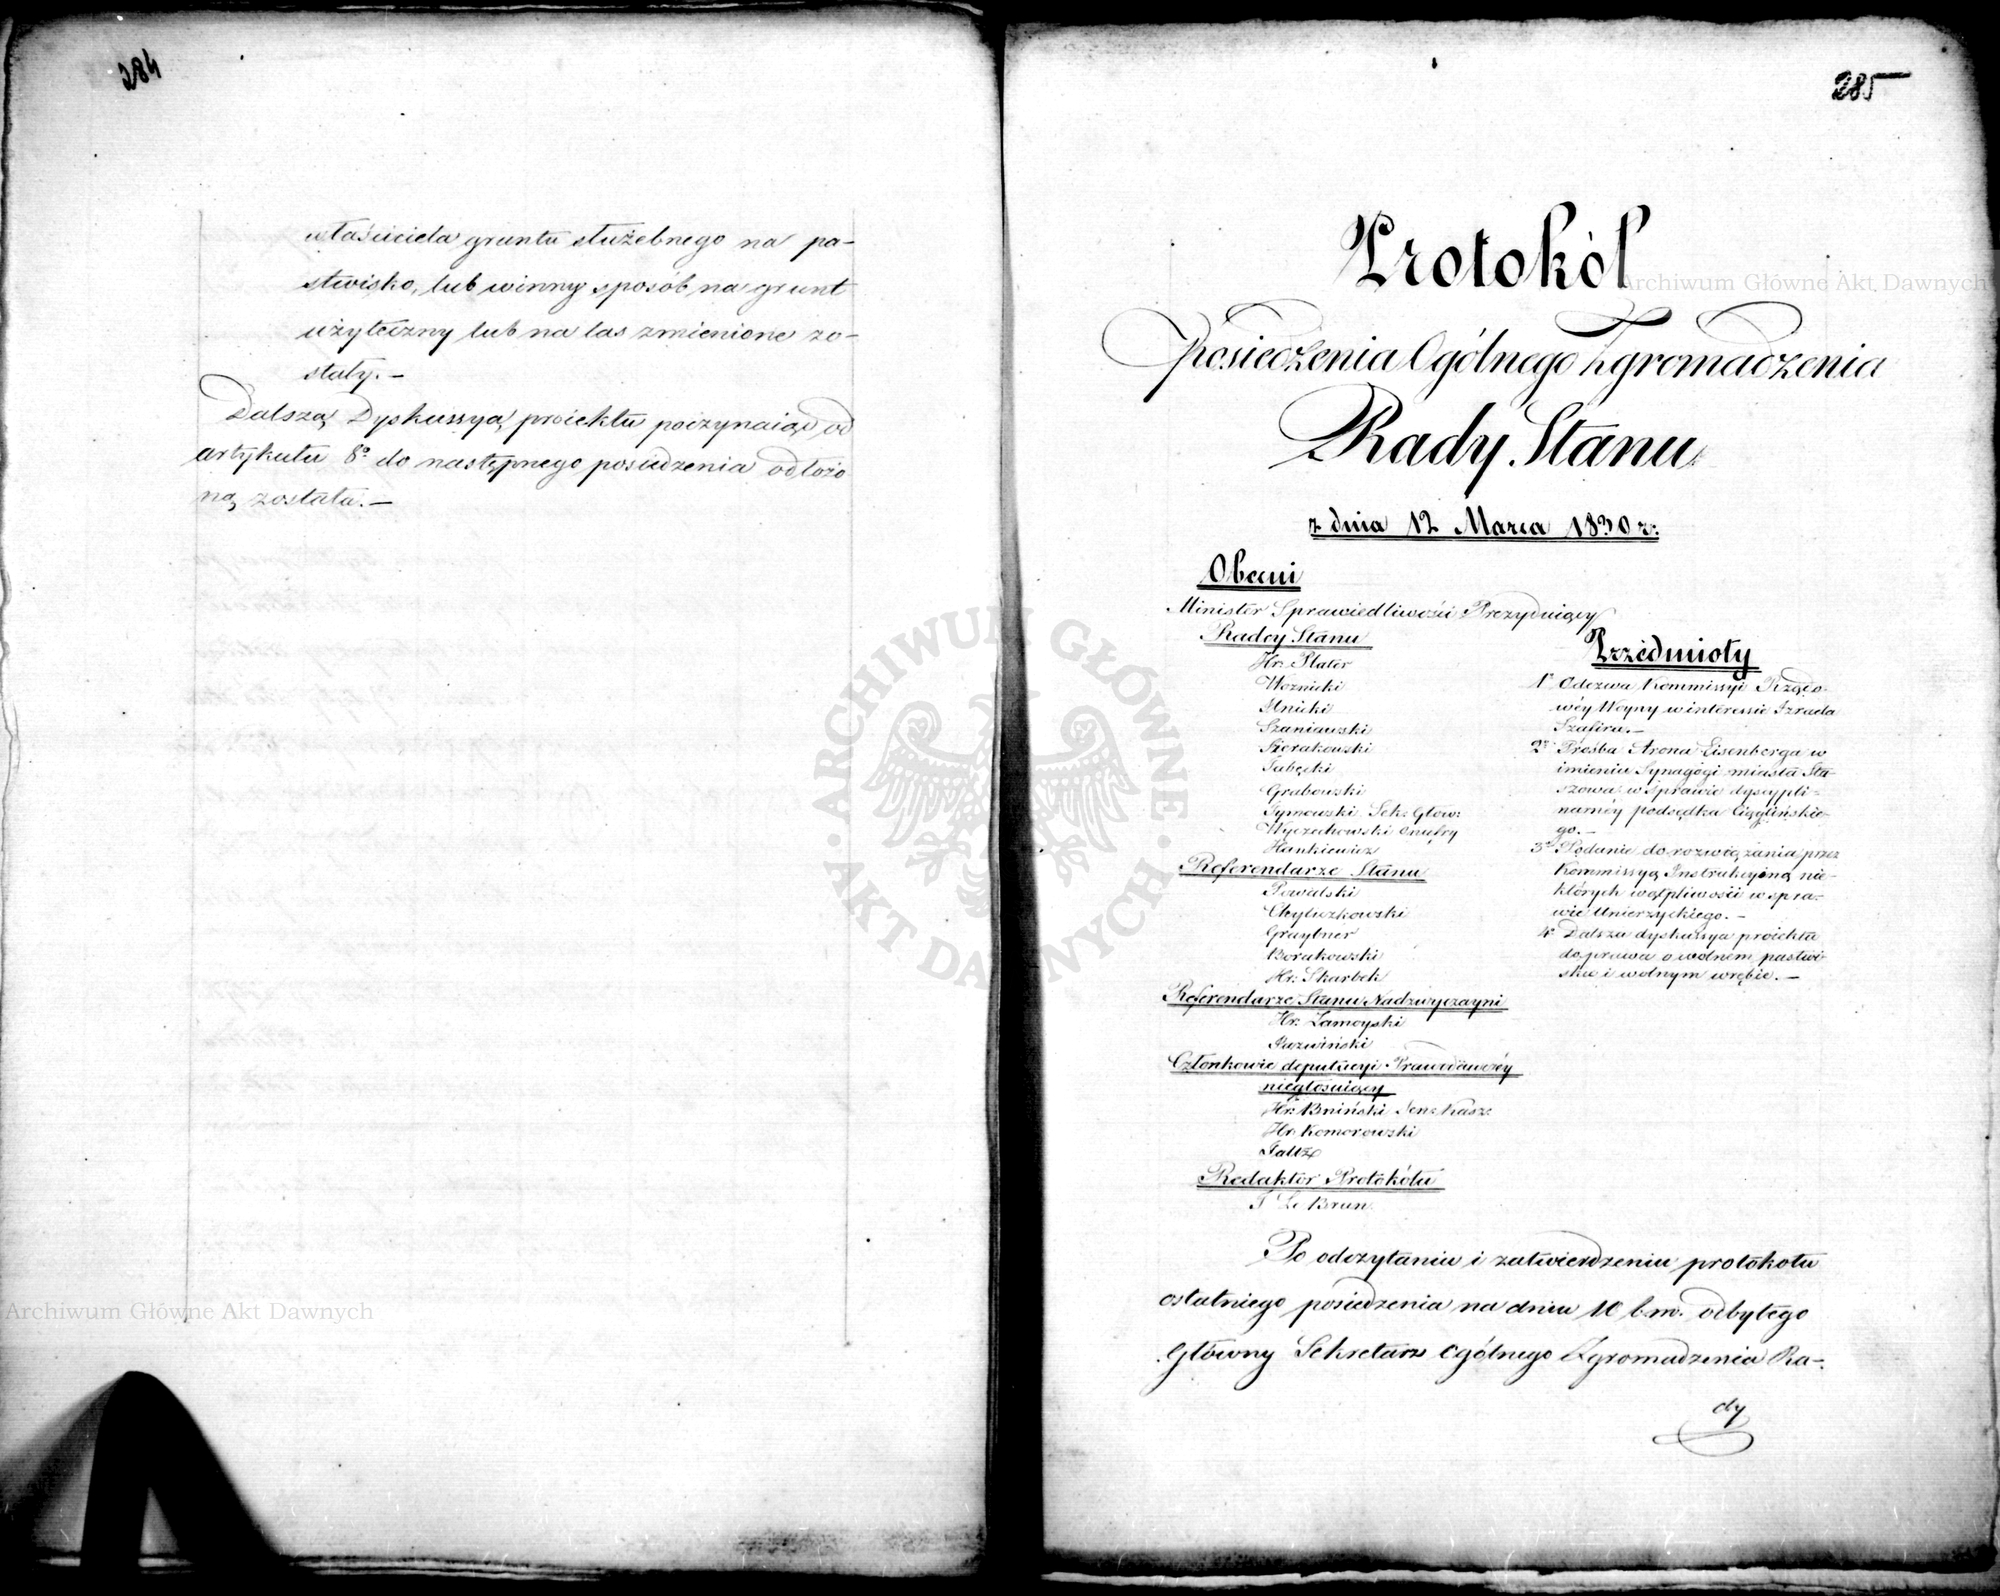 284
właściciela gruntu służebnego na pa-
stwisko, lub winny sposób na grunt
użyteczny lub na las zmienione zo-
stały. —
Dalszą Dyskussyą proiektu poczynaiąc od
artykułu 8o do następnego posiedzenia odłożo
ną została. —
285
Protokół
Posiedzenia Ogólnego Zgromadzenia
Rady Stanu
z dnia 12 Marca 1830 r:
Obecni
Minister Sprawiedliwości Prezyduiący
Radcy Stanu
Hr: Plater
Woznicki
Szaniawski
Sierakowski
Tubęcki
Grabowski
Tymowski Sek: Głow:
Wyczechowski Onufry
Hankiewicz
Referendarze Stanu
Chyliczkowski
Graybner
Borakowski
Hr: Skarbek
Referendarze Stanu Nadzwyczayni
Hr: Zamoyski
Członkowie deputacyi Prawodawczéy
niegłosuiący
Hr: Bniński Sen: Kasz:
Hr: Komorowski
Faltz
Redaktor Protokółu
T Le Brun
Przedmioty
1o Odezwa Kommissyi Rządo-
wéy Woyny w interessie Izraela
Szafira. —
2o Prośba Arona Eisenberga w
imieniu Synagogi miasta Sta-
szowa w sprawie dyscypli-
narnéy podsędka Ciąglińskie-
go. —
3o Podanie do rozwiązania przez
Kommissyą Instrukcyiną nie-
których wątpliwości w spra-
wie Unierzyckiego. —
4o Dalsza dyskussya proiektu
do prawa o wolnem pastwi-
sku i wolnym wrębie. —
Po odczytaniu i zatwierdzeniu protokołu
ostatniego posiedzenia na dniu 10 b. m. odbytego
Główny Sekretarz Ogólnego Zgromadzenia Ra-
dy
Archiwum Główne Akt Dawnych
Archiwum Główne Akt Dawnych
ARCHIWUM GŁÓWNE AKT DAWNYCH